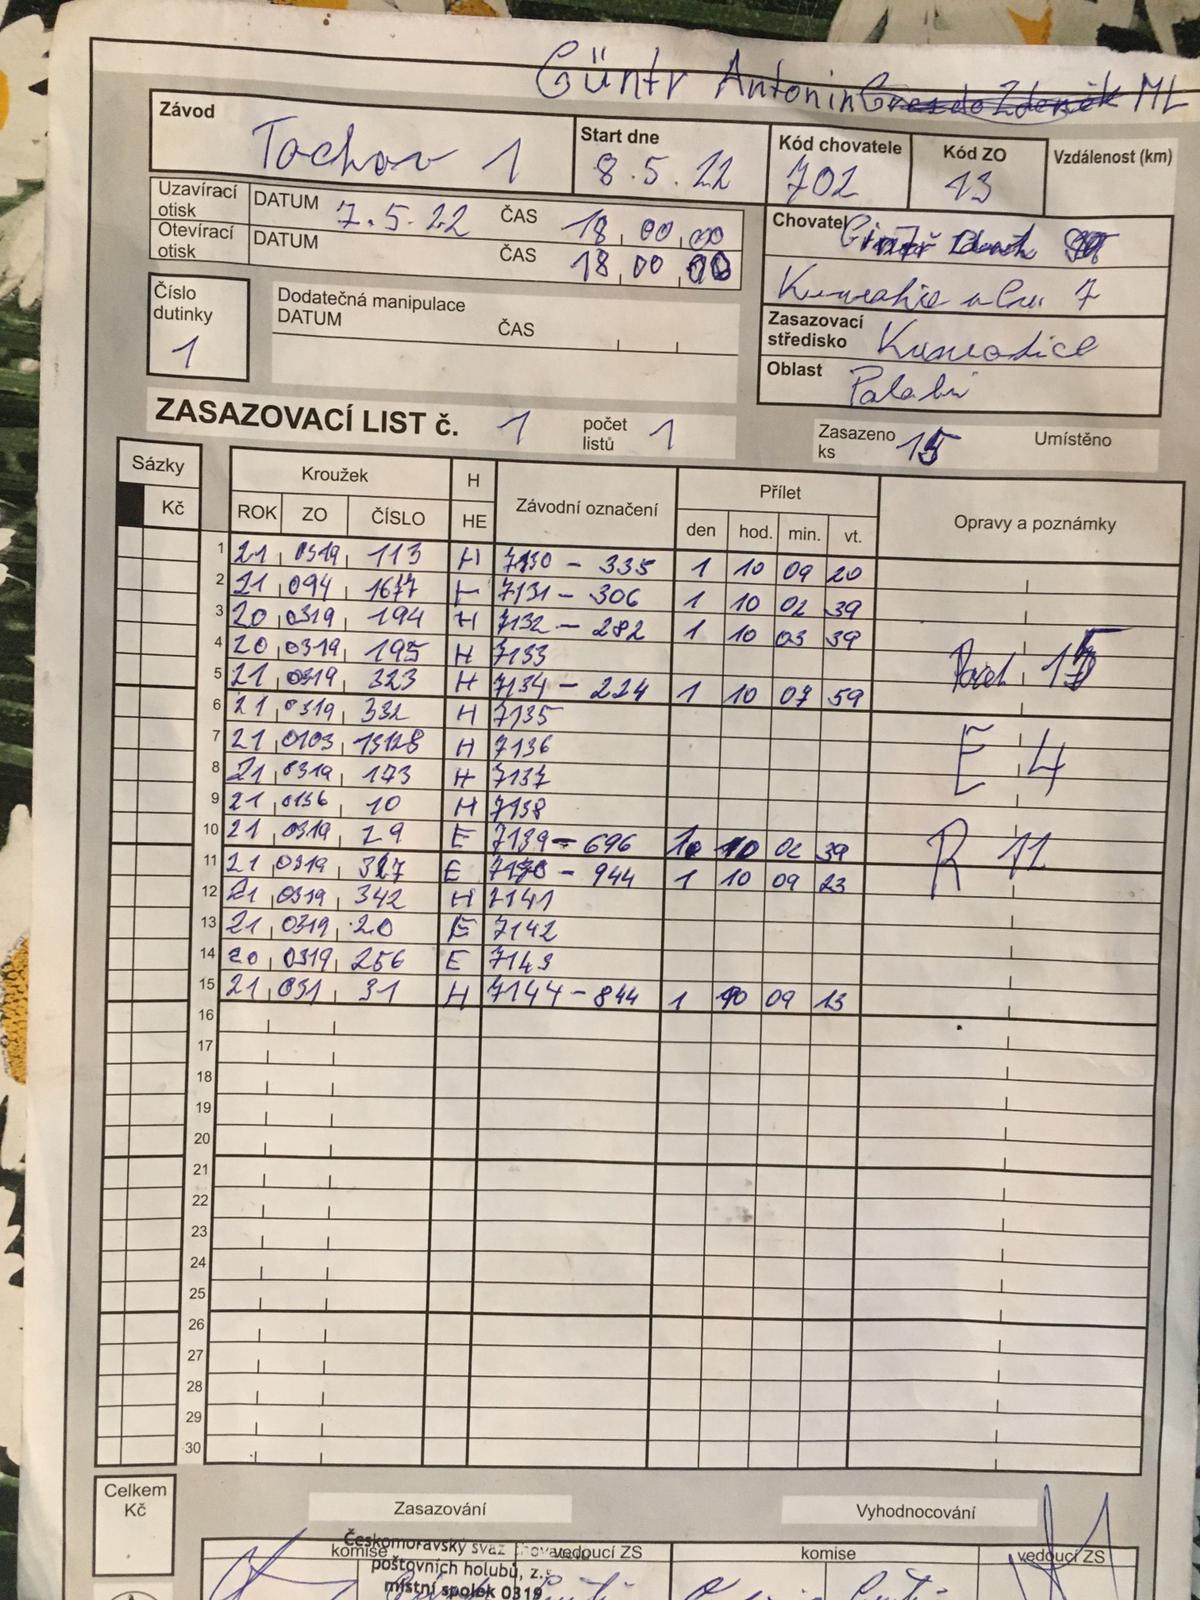 Güntr Antonín Zdeněk ML
Závod Tachov 1 Start dne 8.5.22 Kód chovatele 702 Kód ZO 13 Vzdálenost (km)
Uzavírací otisk DATUM 7.5.22 ČAS 18 00 00
Otevírací otisk DATUM ČAS 18 00 00
Chovatel
7
Číslo dutinky 1
Dodatečná manipulace
DATUM ČAS
Zasazovací středisko Kunratice
Oblast Polabí
ZASAZOVACÍ LIST č. 1 počet listů 1
Zasazeno ks 15 Umístěno
Sázky Kroužek H Závodní označení Přílet Opravy a poznámky
Kč ROK ZO ČÍSLO HE den hod. min. vt.
1 21 0319 113 H 7130 - 335 1 10 09 20
2 21 094 1677 H 7131 - 306 1 10 02 39
3 20 0319 194 H 7132 - 282 1 10 03 39
4 20 0319 195 H 7133
5 21 0319 323 H 7134 - 224 1 10 07 59
6 21 0319 332 H 7135
7 21 0103 H 7136
8 21 0319 173 H 7137
9 21 0156 10 H 7138
10 21 0319 29 E 7139 - 696 1 10 02 39
11 21 0319 327 E - 944 1 10 09 23
12 21 0319 342 H 7141
13 21 0319 20 E 7142
14 20 0319 256 E 7143
15 21 031 31 H 7144 - 844 1 10 09 13
15
E 4
R 11
16
17
18
19
20
21
22
23
24
25
26
27
28
29
30
Celkem Kč
Zasazování Vyhodnocování
komise vedoucí ZS komise vedoucí ZS
Českomoravský svaz chovatelů
poštovních holubů, z.s.
místní spolek 0319